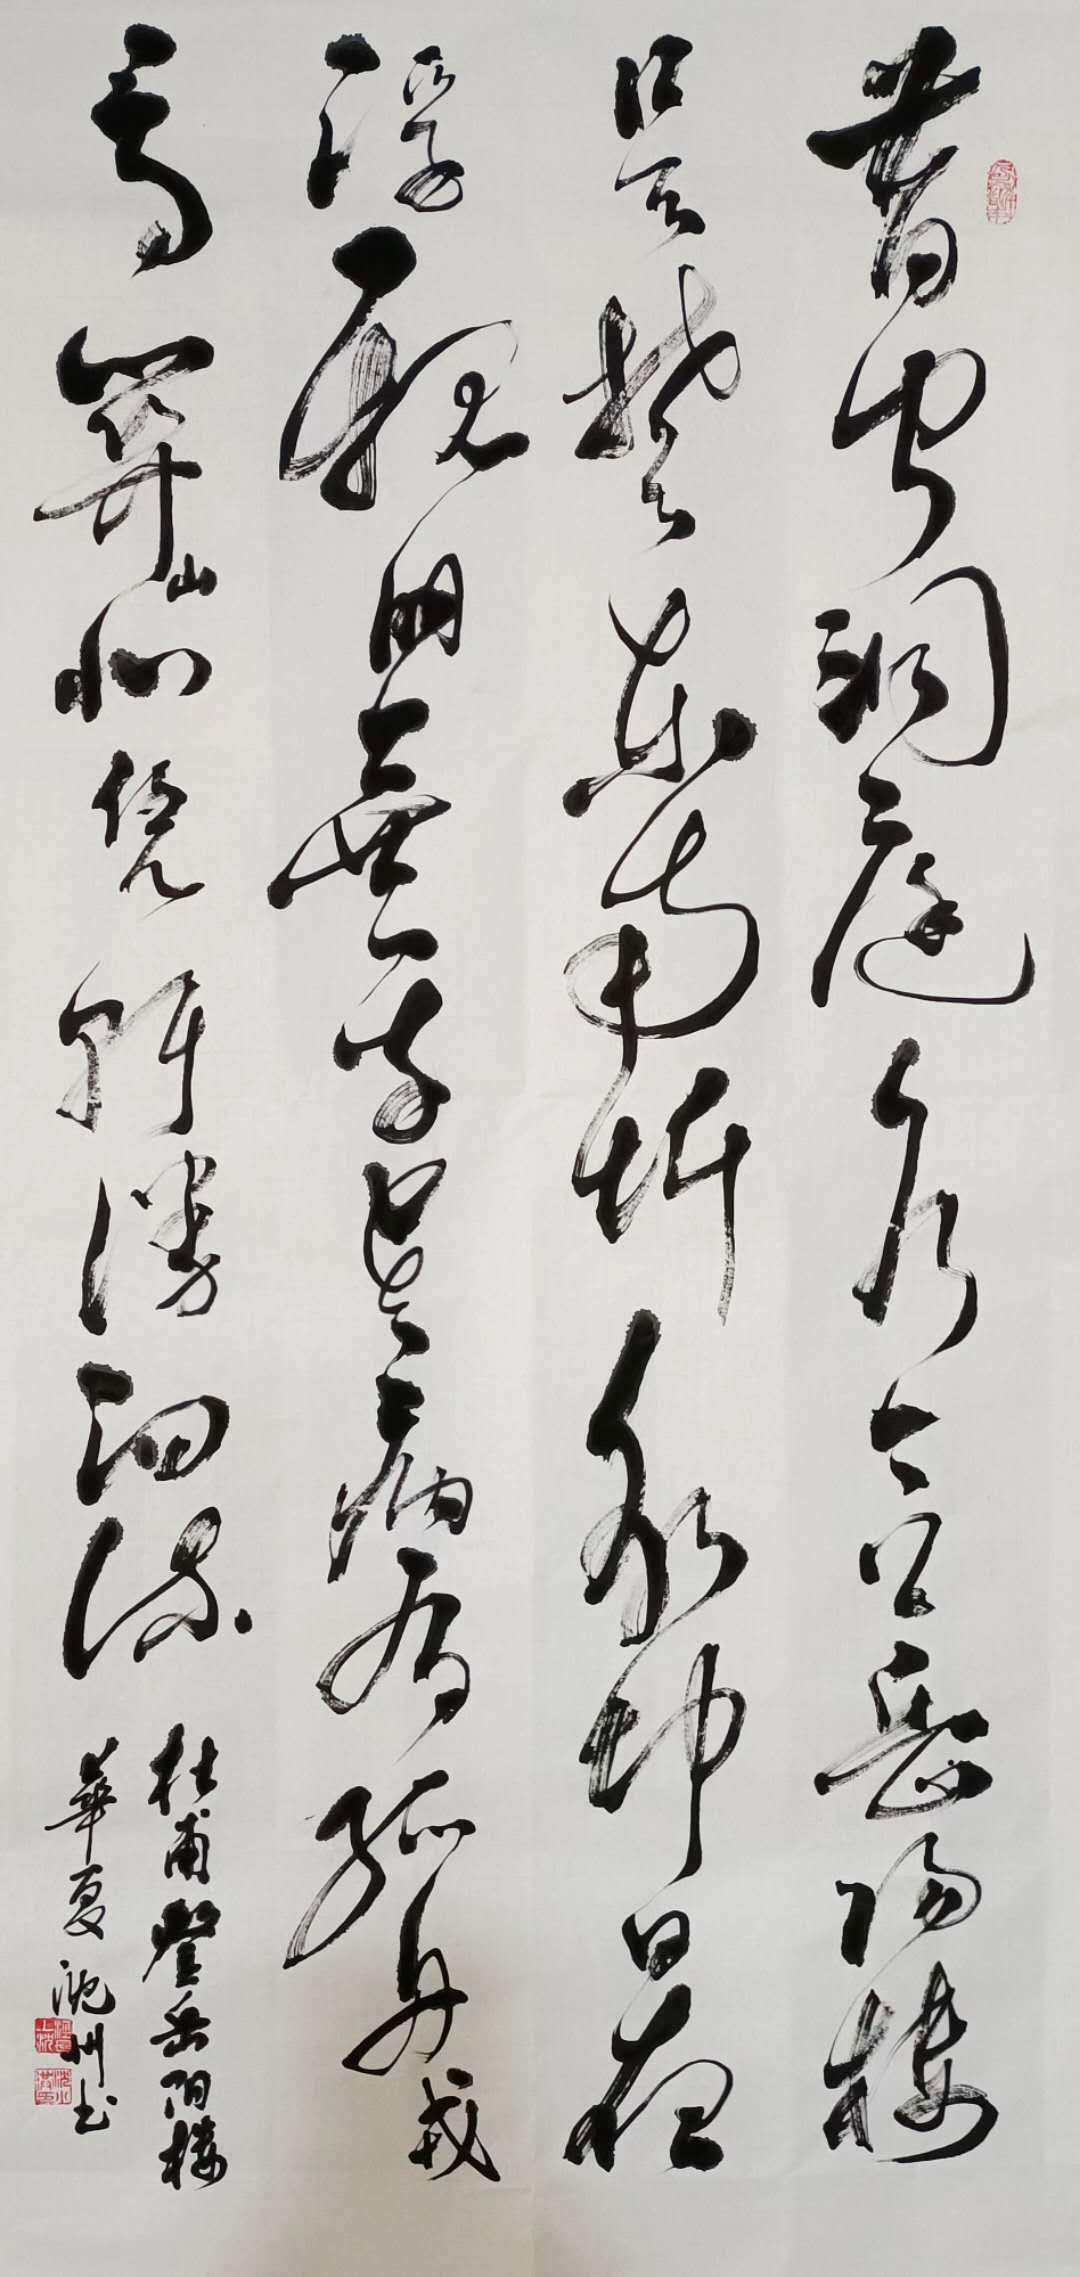 昔闻洞庭水今上岳陽楼
吴楚東南坼乾坤日夜
浮親朋無一字老病有孤舟戎
馬關山北凭軒涕泗流
杜甫登岳阳楼
華夏沈州书